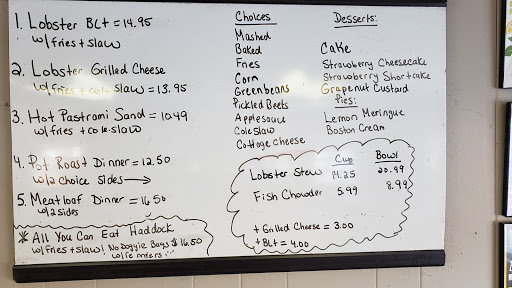 1. Lobster BLt = 14.95
w/fries + slaw
2. Lobster Grilled Cheese
w/fries + cole slaw = 13.95
3. Hot Pastrami Sand = 10.49
w/fries + cole slaw
4. Pot Roast Dinner = 12.50
w/2 choice sides →
5. Meatloaf Dinner = 16.50
w/2 sides
* All You Can Eat Haddock
w/fries + slaw! No Doggie Bags $16.50
w/re orders!
Choices
Mashed
Baked
Fries
Corn
Greenbeans
Pickled Beets
Applesauce
Coleslaw
Cottage cheese
Desserts:
Cake
Strawberry Cheesecake
Strawberry Shortcake
Grapenut Custard
Pies:
Lemon Meringue
Boston Cream
Cup Bowl
Lobster Stew 14.25 20.99
Fish Chowder 5.99 8.99
+ Grilled Cheese = 3.00
+ BLt = 4.00